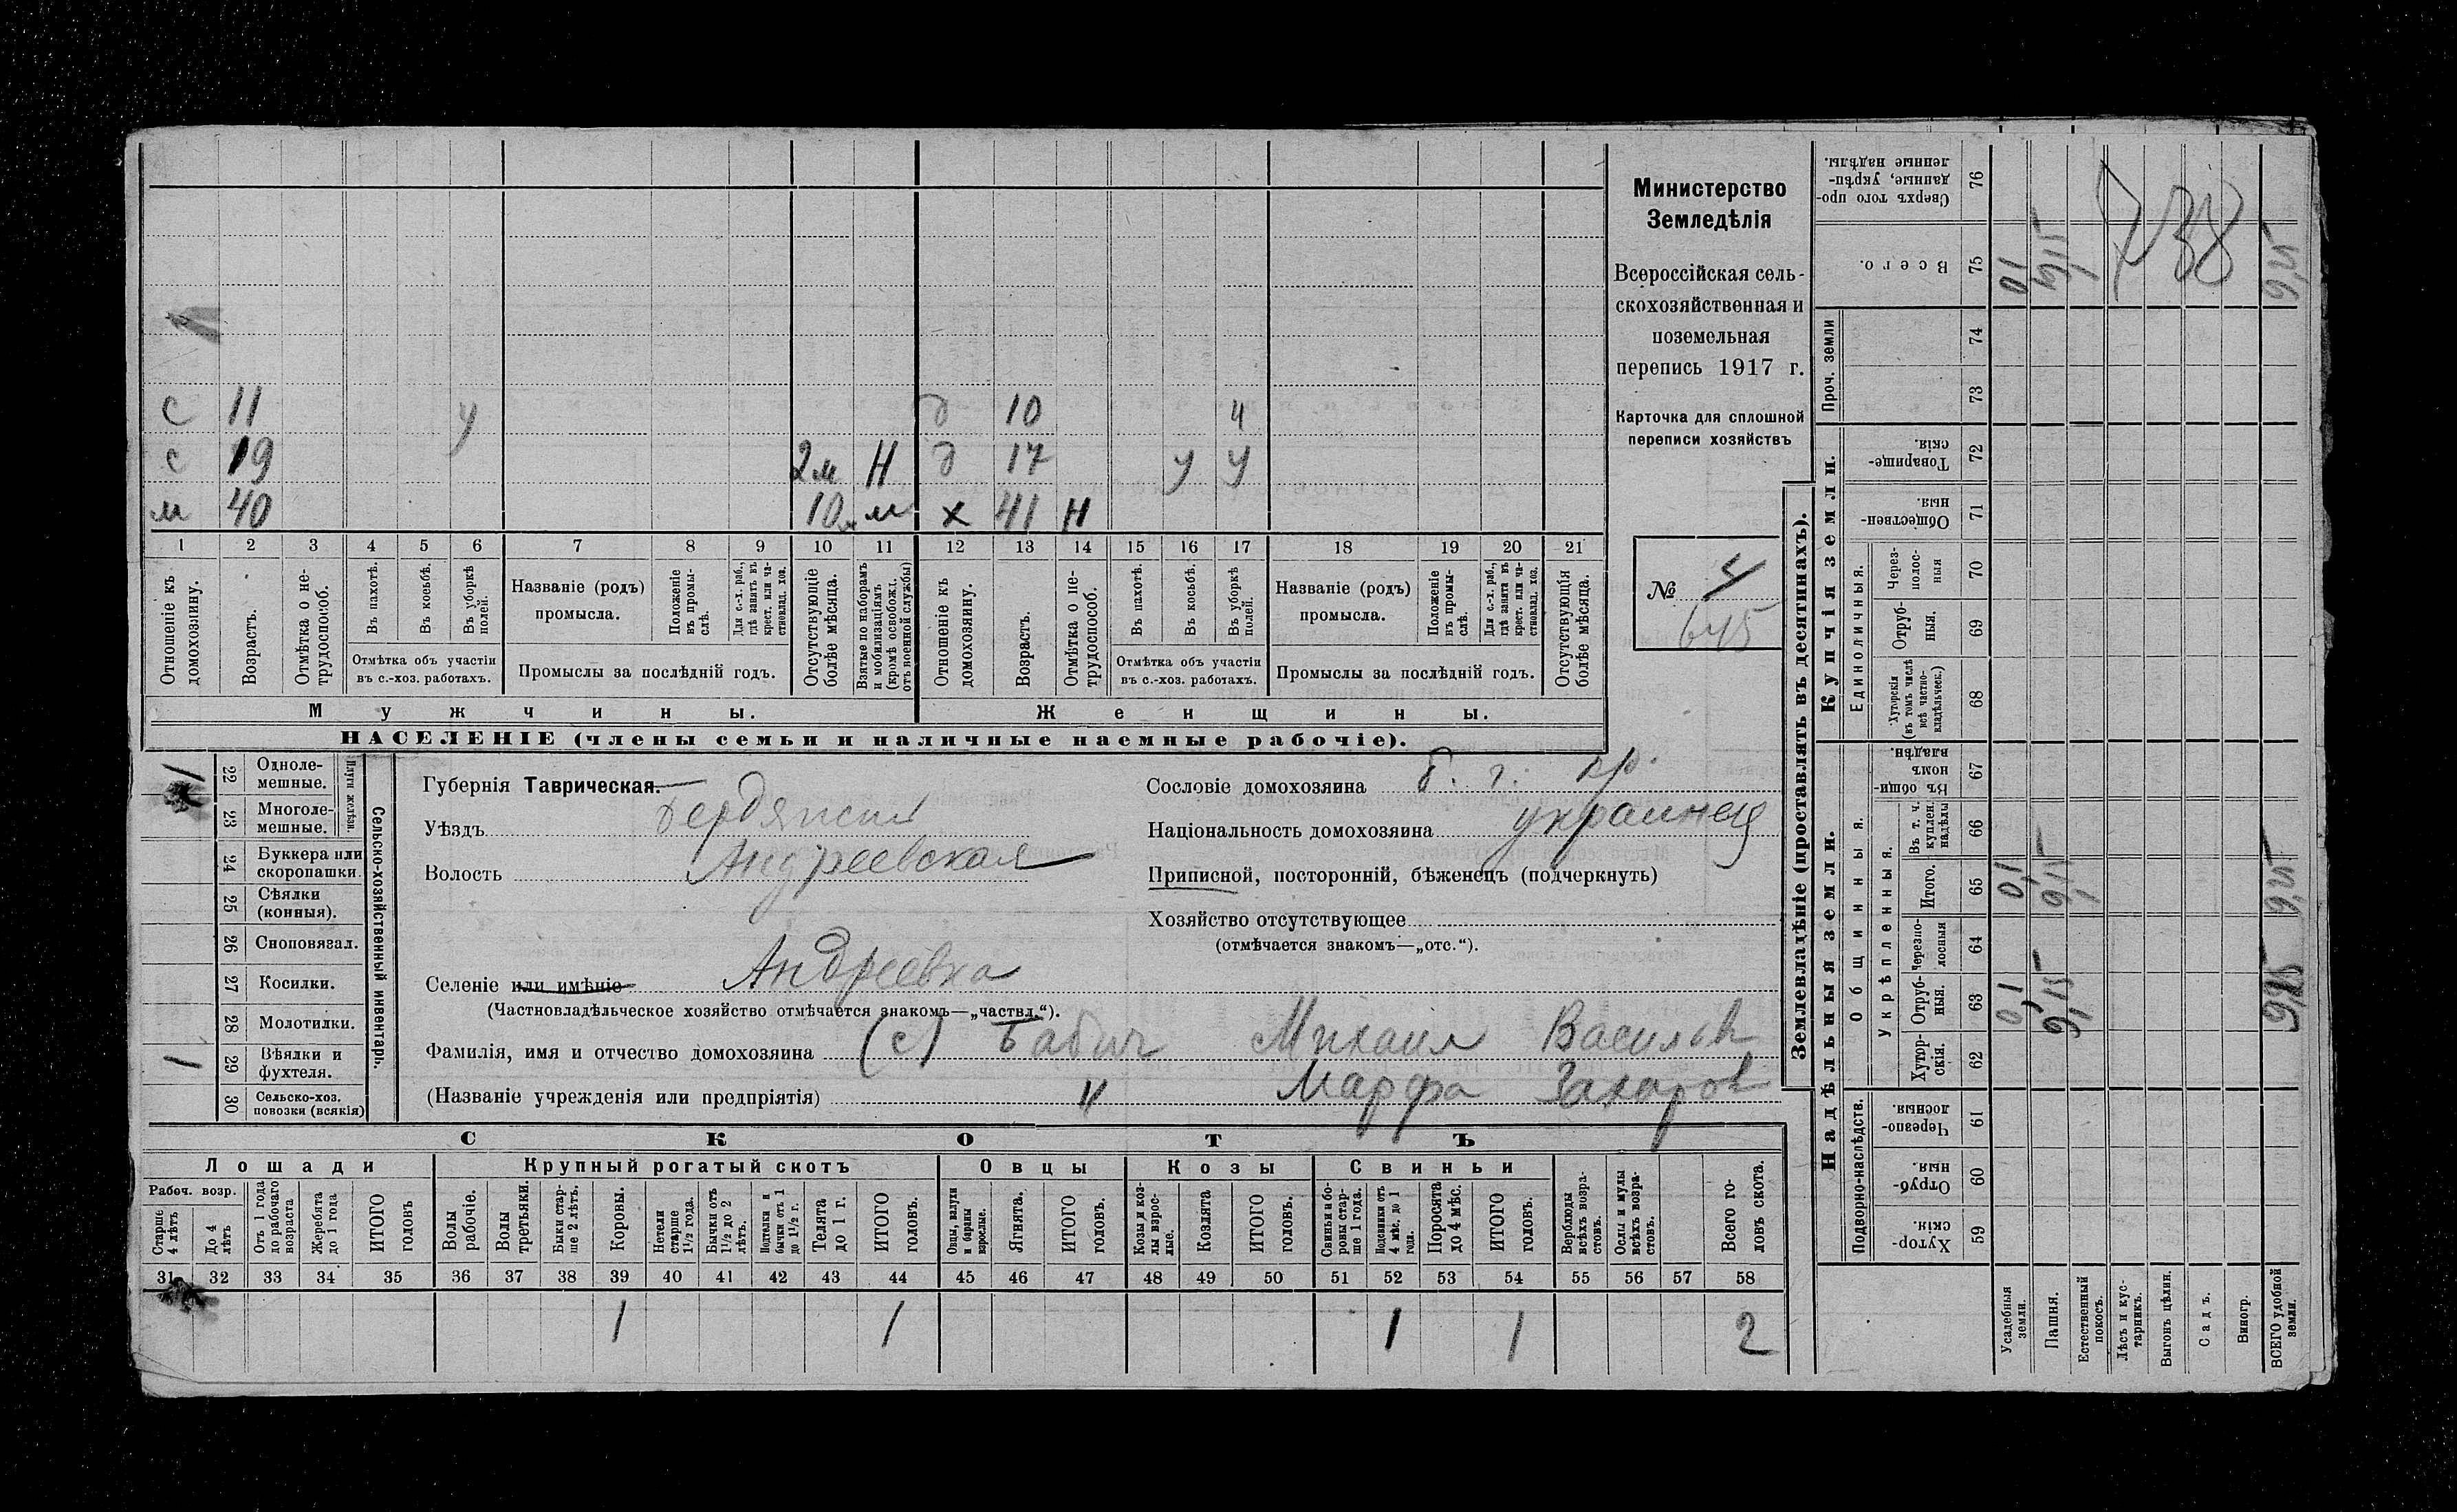 с 11 у д 10 ч
с 19 2м Н д 17 у у
м 40 10м м х 41 Н
1 2 3 4 5 6 7 8 9 10 11 12 13 14 15 16 17 18 19 20 21
Отношеніе къ домохозяину.
Возрастъ.
Отмѣтка о нетрудоспособ.
Въ пахотѣ.
Въ косьбѣ.
Въ уборкѣ полей.
Отмѣтка объ участіи въ с.-хоз. работахъ.
Названіе (родъ) промысла.
Положеніе въ промыслѣ.
Для с.-х. раб., гдѣ занятъ въ крест. или частновлад. хоз.
Промыслы за послѣдній годъ.
Отсутствующіе болѣе мѣсяца.
Взятые по наборамъ и мобилизаціямъ (кромѣ освобожд. отъ военной службы)
Отношеніе къ домохозяину.
Возрастъ.
Отмѣтка о нетрудоспособ.
Въ пахотѣ.
Въ косьбѣ.
Въ уборкѣ полей.
Отмѣтка объ участіи въ с.-хоз. работахъ.
Названіе (родъ) промысла.
Положеніе въ промыслѣ.
Для с.-х. раб., гдѣ занята въ крест. или частновлад. хоз.
Промыслы за послѣдній годъ.
Отсутствующія болѣе мѣсяца.
Мужчины. Женщины.
НАСЕЛЕНІЕ (члены семьи и наличные наемные рабочіе).
Министерство
Земледѣлія
Всероссійская сель-
скохозяйственная и
поземельная
перепись 1917 г.
Карточка для сплошной
переписи хозяйствъ
№ 4
645
1 22 Одноле-мешные.
23 Многоле-мешные.
Плуги желѣзн.
24 Буккера или скоропашки.
25 Сѣялки (конныя).
26 Сноповязал.
27 Косилки.
28 Молотилки.
1 29 Вѣялки и фухтеля.
30 Сельско-хоз. повозки (всякія)
Сельско-хозяйственный инвентарь.
Губернія Таврическая.
Уѣздъ Бердянскій
Волость Андреевская
Селеніе или имѣніе Андреевка
(Частновладѣльческое хозяйство отмѣчается знакомъ—„частвл.“).
Фамилія, имя и отчество домохозяина (с) Бабич Михаил Васильев
(Названіе учрежденія или предпріятія) " Марфа Захаров
Сословіе домохозяина б. г. кр.
Національность домохозяина украинец
Приписной, посторонній, бѣженецъ (подчеркнуть)
Хозяйство отсутствующее
(отмѣчается знакомъ—„отс.“).
СКОТЪ
Лошади Крупный рогатый скотъ Овцы Козы Свиньи
Рабоч. возр.
Старше 4 лѣтъ
До 4 лѣтъ
Отъ 1 года до рабочаго возраста
Жеребята до 1 года
ИТОГО головъ
Волы рабочіе.
Волы третьяки.
Быки старше 2 лѣтъ.
Коровы.
Нетели старше 1½ года.
Бычки отъ 1½ до 2 лѣтъ.
Подтелки и бычки отъ 1 до 1½ г.
Телята до 1 г.
ИТОГО головъ.
Овцы, валухи и бараны взрослые.
Ягнята.
ИТОГО головъ.
Козы и козлы взрослые.
Козлята
ИТОГО головъ.
Свиньи и бороны старше 1 года.
Подсвинки отъ 4 мѣс. до 1 года.
Поросята до 4 мѣс.
ИТОГО головъ.
Верблюды всѣхъ возрастовъ.
Ослы и мулы всѣхъ возрастовъ.
Всего головъ скота.
31 32 33 34 35 36 37 38 39 40 41 42 43 44 45 46 47 48 49 50 51 52 53 54 55 56 57 58
1 1 1 1 2
Землевладѣніе (проставлять въ десятинахъ).
Надѣльныя земли. Купчія земли. Проч. земли
Подворно-наслѣдств. Общинныя. Укрѣпленныя. Единоличныя.
Сверхъ того проданные, укрѣпленные надѣлы. 76
Всего. 75 0,1 9,15 9,25
738
74
73
Товарищескія. 72
Общественныя. 71
Черезполосныя 70
Отрубныя. 69
Хуторскія (въ томъ числѣ всѣ частновладѣльческ.) 68
Въ общинномъ владѣн. 67
Въ т. ч. куплен. надѣлы 66
Итого. 65 0,1 9,15 9,25
Черезполосныя 64
Отрубныя. 63 0,1 9,15 9,25
Хуторскія. 62
Черезполосныя. 61
Отрубныя. 60
Хуторскія. 59
Усадебныя земли.
Пашня.
Естественный покосъ.
Лѣсъ и кустарникъ.
Выгонъ цѣлин.
Садъ.
Виногр.
ВСЕГО удобной земли.